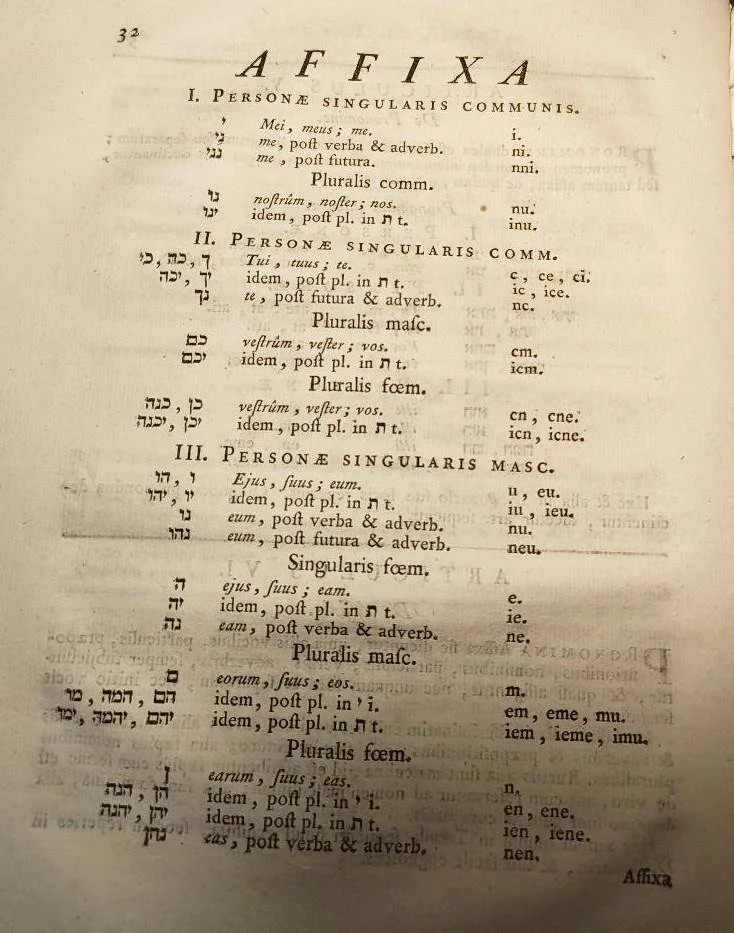 32
AFFIXA
I. PERSONÆ SINGULARIS COMMUNIS.
י Mei, meus; me. i.
ני me, poſt verba & adverb. ni.
נני me, poſt futura. nni.
Pluralis comm.
נו noſtrûm, noſter; nos. nu.
ינו idem, poſt pl. in ת t. inu.
II. PERSONÆ SINGULARIS COMM.
ך, כה, כי Tui, tuus; te. c, ce, ci.
יך, יכה idem, poſt pl. in ת t. ic, ice.
נך te, poſt futura & adverb. nc.
Pluralis maſc.
כם veſtrûm, veſter; vos. cm.
יכם idem, poſt pl. in ת t. icm.
Pluralis fœm.
כן, כנה veſtrûm, veſter; vos. cn, cne.
יכן, יכנה idem, poſt pl. in ת t. icn, icne.
III. PERSONÆ SINGULARIS MASC.
ו, הו Ejus, ſuus; eum. u, eu.
יו, יהו idem, poſt pl. in ת t. iu, ieu.
נו eum, poſt verba & adverb. nu.
נהו eum, poſt futura & adverb. neu.
Singularis fœm.
ה ejus, ſuus; eam. e.
יה idem, poſt pl. in ת t. ie.
נה eam, poſt verba & adverb. ne.
Pluralis maſc.
ם eorum, ſuus; eos. m.
הם, המה, מו idem, poſt pl. in י i. em, eme, mu.
יהם, יהמה, ימו idem, poſt pl. in ת t. iem, ieme, imu.
Pluralis fœm.
ן earum, ſuus; eas. n.
הן, הנה idem, poſt pl. in י i. en, ene.
יהן, יהנה idem, poſt pl. in ת t. ien, iene.
נהן eas, poſt verba & adverb. nen.
Affixa